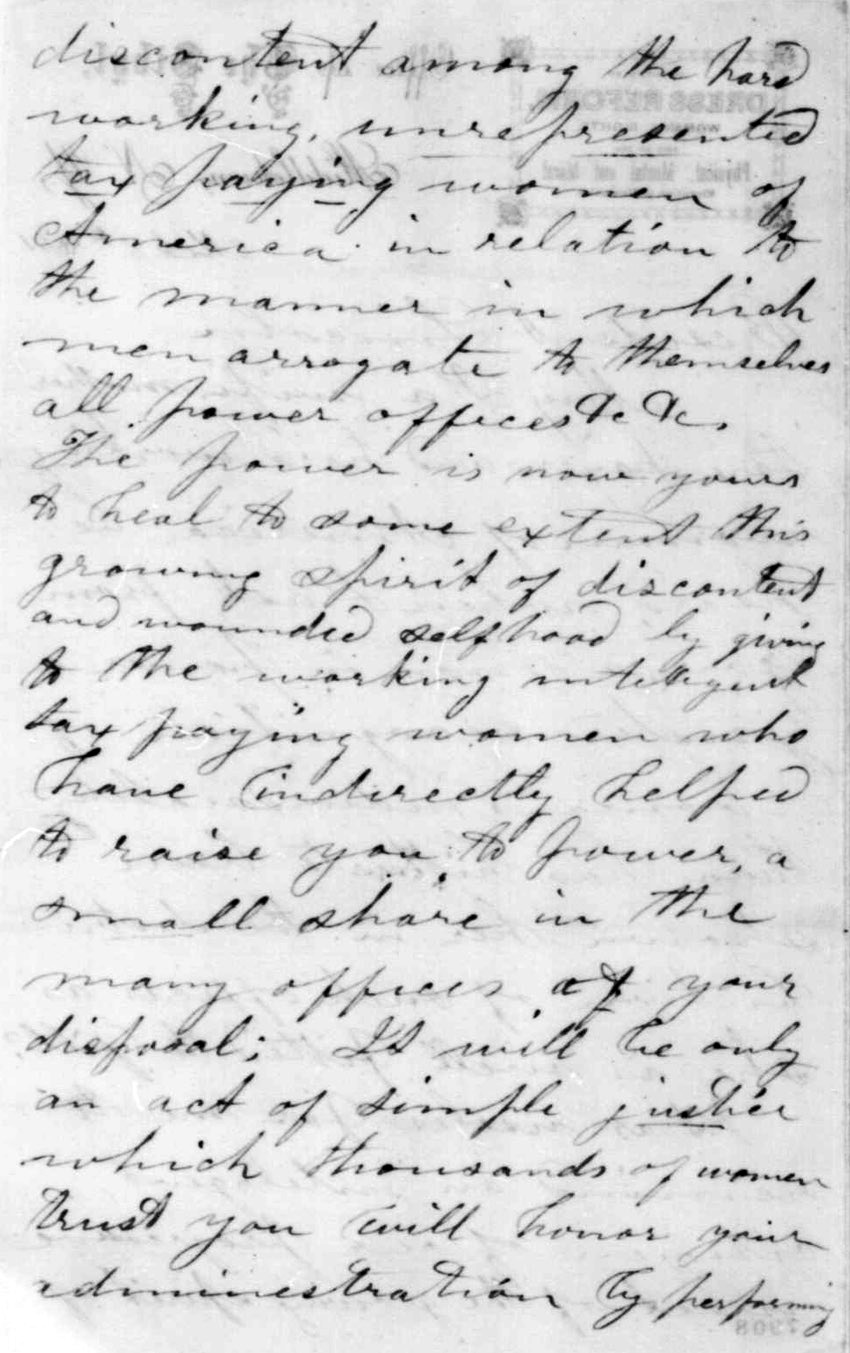 discontent among the hard
working, unrepresented
tax paying women of
America in relation to
the manner in which
men arrogate to themselves
all power offices &c &c,
The power is now yours
to heal to some extent this
growing spirit of discontent
and wounded selfhood by giving
to the working intelligent
tax paying women who
have indirectly helped
to raise you to power, a
small share in the
many offices at your
disposal; It will be only
an act of simple justice
which thousands of women
trust you will honor your
administration by performing